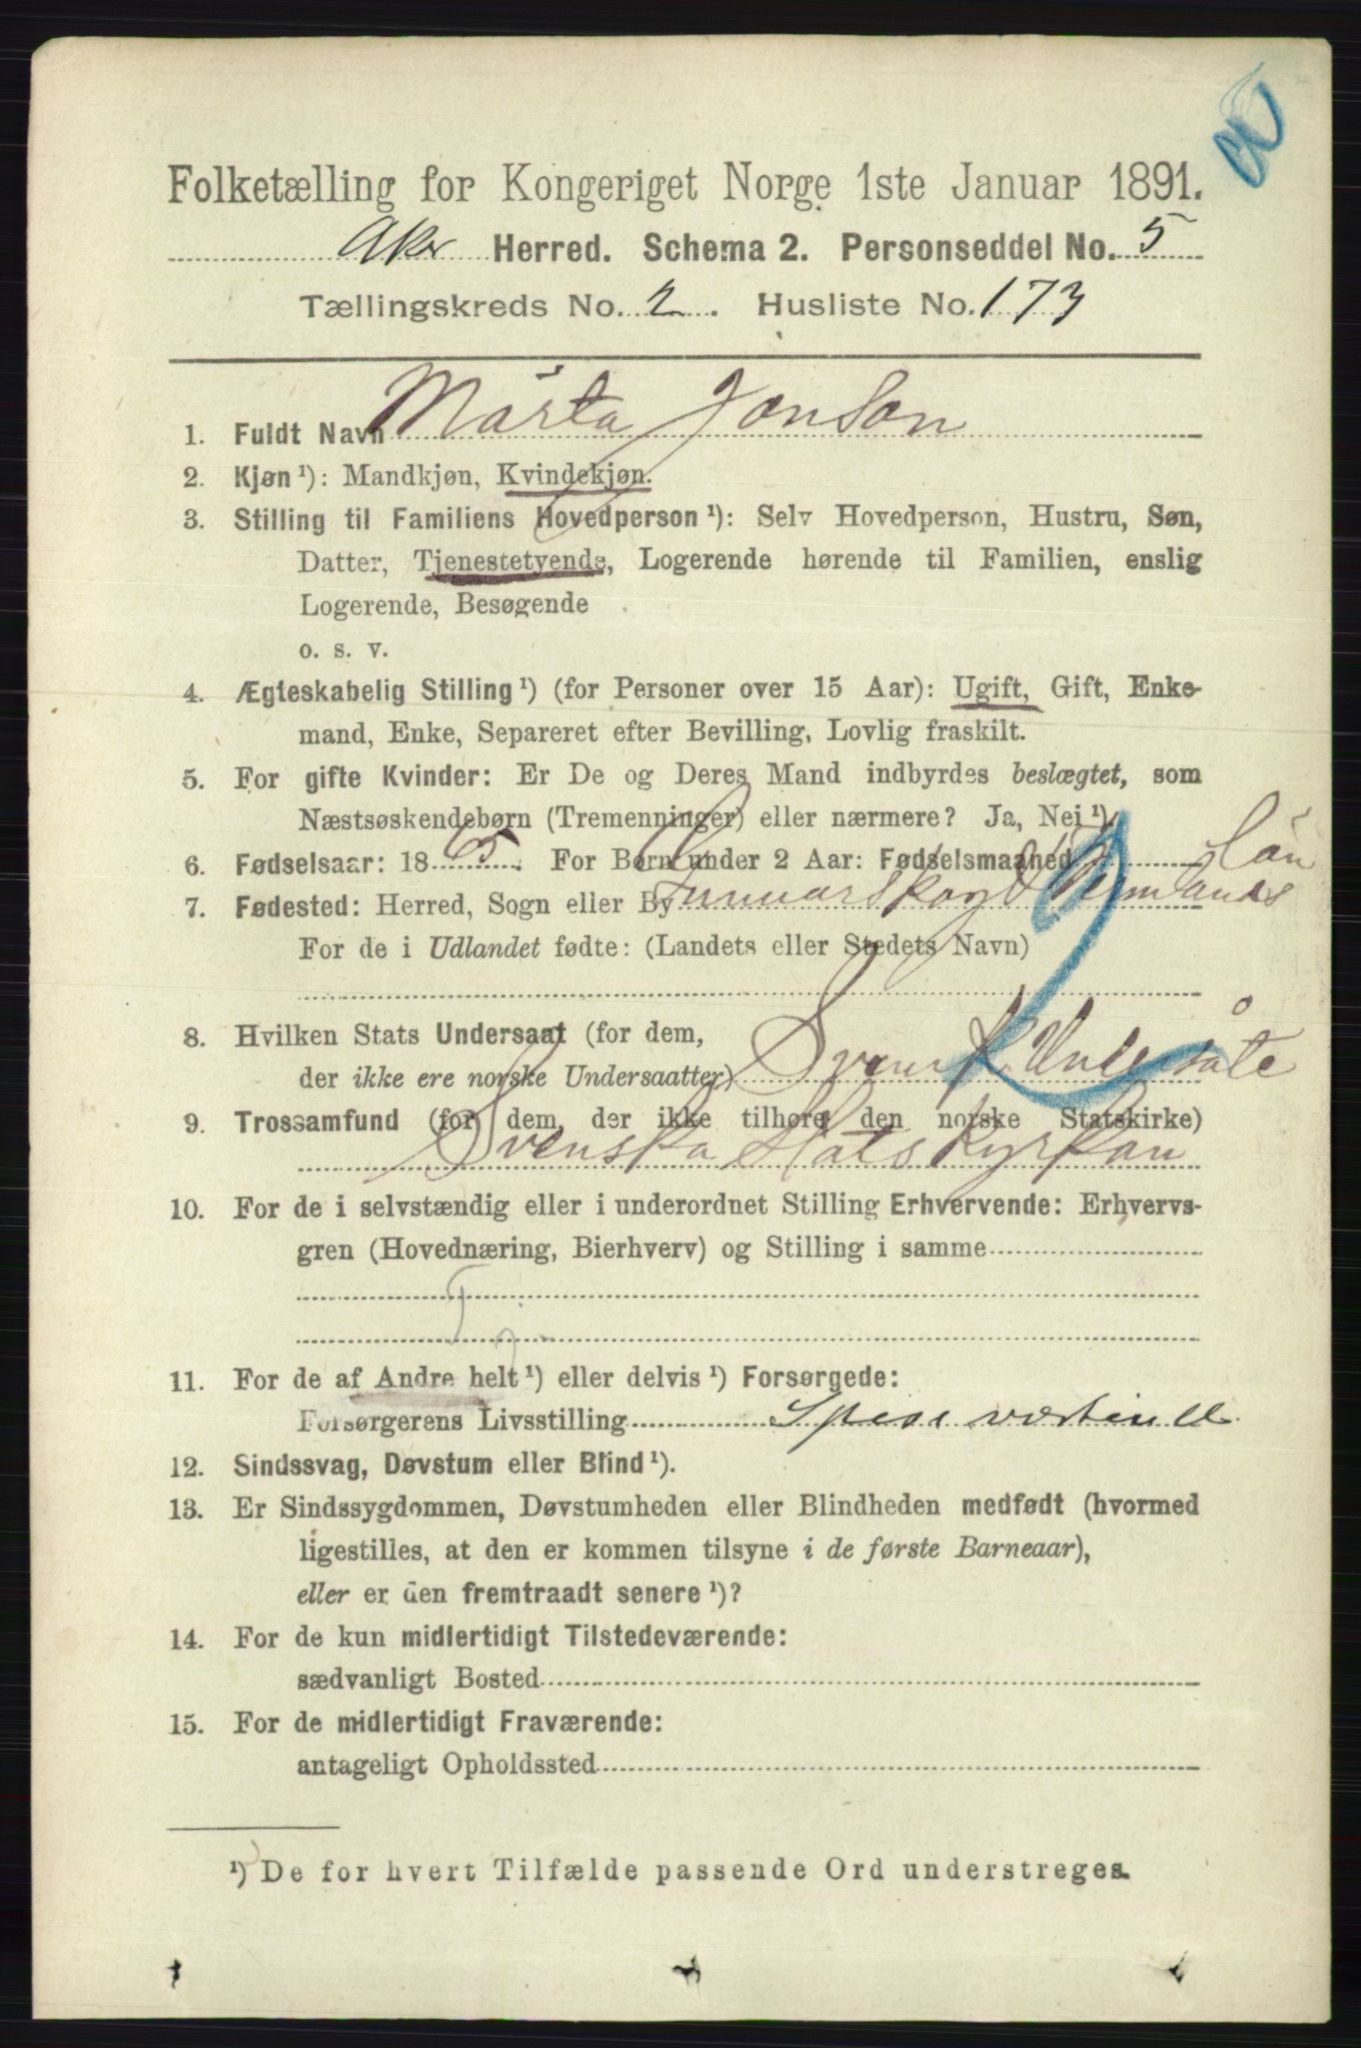 Folketælling for Kongeriget Norge 1ste Januar 1891.
Aker Herred. Schema 2. Personseddel No. 5
Tællingskreds No. 2. Husliste No. 173
1. Fuldt Navn Märta Jonson
2. Kjøn¹): Mandkjøn, Kvindekjøn.
3. Stilling til Familiens Hovedperson¹): Selv Hovedperson, Hustru, Søn,
Datter, Tjenestetyende, Logerende hørende til Familien, enslig
Logerende, Besøgende
o. s. v.
4. Ægteskabelig Stilling¹) (for Personer over 15 Aar): Ugift, Gift, Enke-
mand, Enke, Separeret efter Bevilling, Lovlig fraskilt.
5. For gifte Kvinder: Er De og Deres Mand indbyrdes beslægtet, som
Næstsøskendebørn (Tremenninger) eller nærmere? Ja, Nei¹).
6. Fødselsaar: 1865. For Børn under 2 Aar: Fødselsmaaned län
7. Fødested: Herred, Sogn eller By Gunnarskog Vermlands
For de i Udlandet fødte: (Landets eller Stedets Navn)
8. Hvilken Stats Undersaat (for dem,
der ikke ere norske Undersaatter) Svensk Undersåte
9. Trossamfund (for dem, der ikke tilhøre den norske Statskirke)
Svenska Statskyrkan
10. For de i selvstændig eller i underordnet Stilling Erhvervende: Erhvervs-
gren (Hovednæring, Bierhverv) og Stilling i samme
11. For de af Andre helt¹) eller delvis¹) Forsørgede:
Forsørgerens Livsstilling Spisevertinde
12. Sindssvag, Døvstum eller Blind¹).
13. Er Sindssygdommen, Døvstumheden eller Blindheden medfødt (hvormed
ligestilles, at den er kommen tilsyne i de første Barneaar),
eller er den fremtraadt senere¹)?
14. For de kun midlertidigt Tilstedeværende:
sædvanligt Bosted
15. For de midlertidigt Fraværende:
antageligt Opholdssted
¹) De for hvert Tilfælde passende Ord understreges.